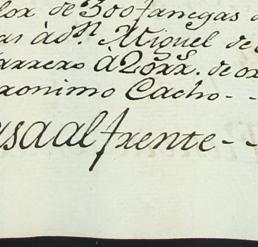 lor de 300 fanegas d
as à dn. Miguel de
arrero à 20 rr. de o
eronimo Cacho - -
asa al frente - -